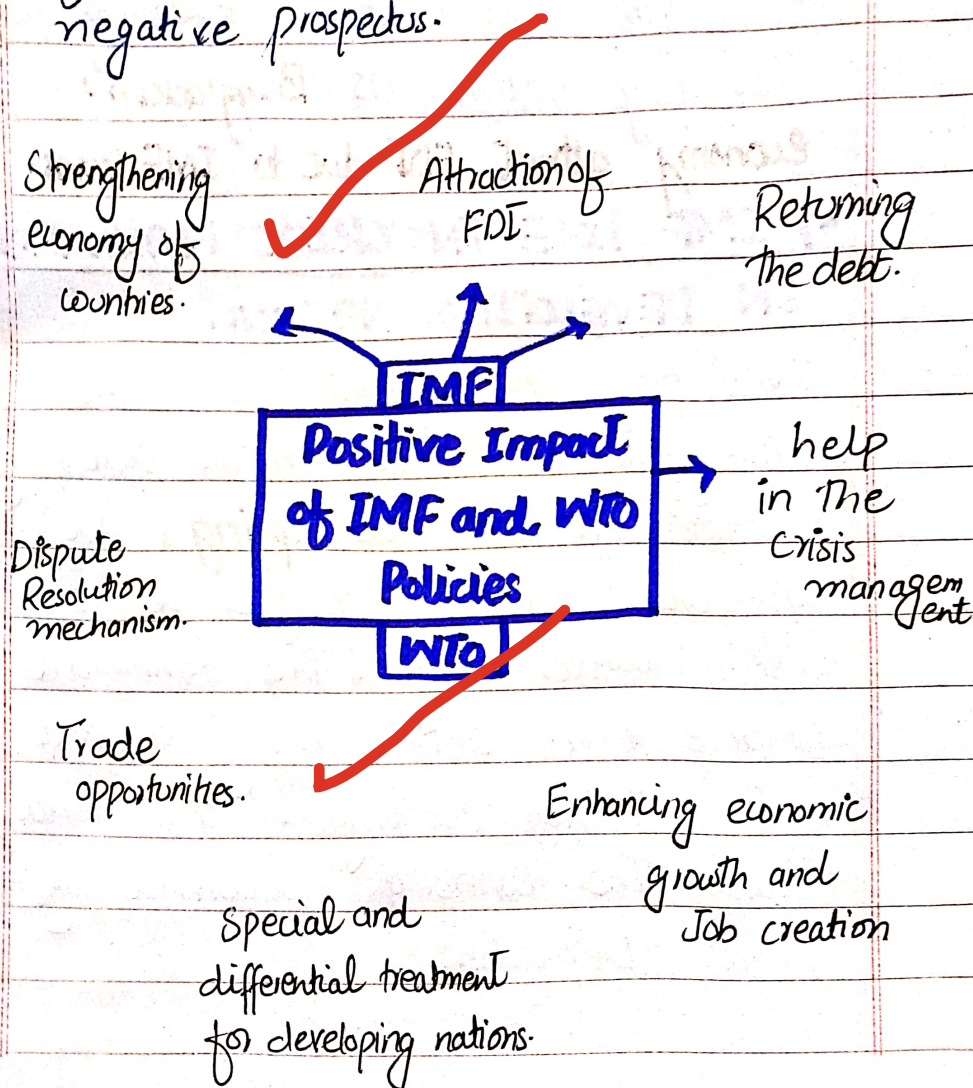 negative prospectus.
Strengthening
economy of
countries.
Attraction of
FDI.
Returning
the debt.
IMF
Positive Impact
of IMF and WTO
Policies
help
in the
crisis
managem
ent
Dispute
Resolution
mechanism.
WTO
Trade
opportunities.
Enhancing economic
growth and
Job creation
Special and
differential treatment
for developing nations.